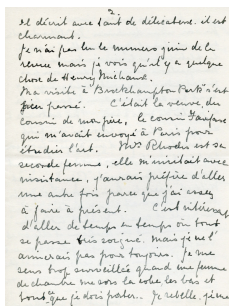 2.
il décrit avec tant de délicatesse. il est
charmant.
Je n'ai pas lu le numero quinze de la
revue mais je vois qu'il y a quelque
chose de Henry Michaud.
Ma visite à Buckhampton Park s'est
bien passé. C'était la veuve du
cousin de mon père, le cousin
qui m'avait envoyé à Paris pour
étudier l'art. Mrs Rhodes est sa
seconde femme, elle m'invitait avec
insistance, j'aurais préféré d'aller
une autre fois parce que j'ai assez
à faire à présent. C'est intéressant
d'aller de temps en temps où tout
se passe très soigné, mais je ne l'
aimerais pas pour toujours. Je me
sens trop surveillée quand une femme
de chambre me sort la robe, les bas et
tout que je dois porter. Je rebelle, je me